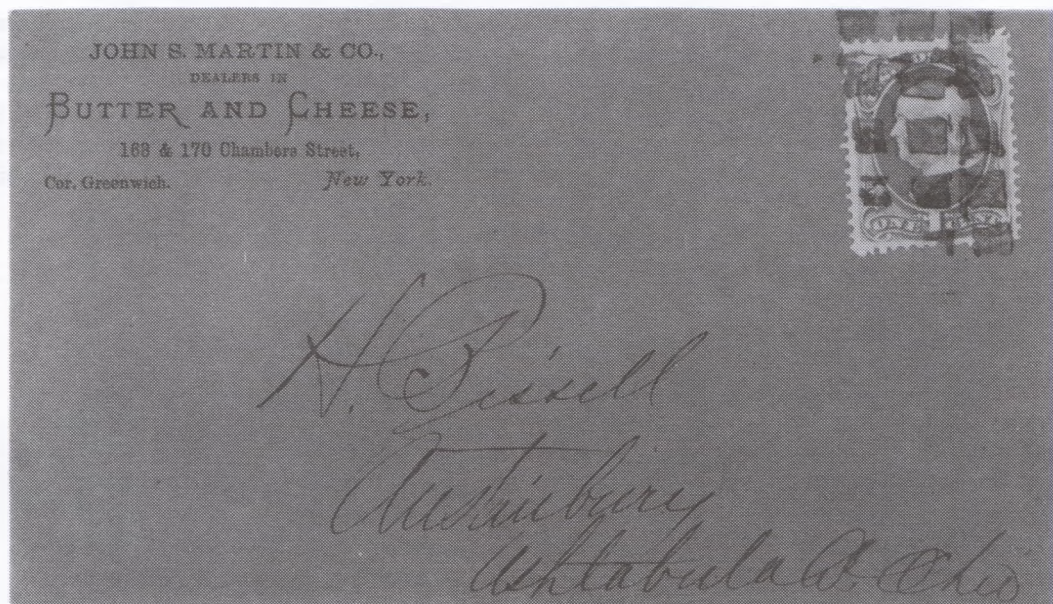 JOHN S. MARTIN & CO.,
DEALERS IN
BUTTER AND CHEESE,
168 & 170 Chambers Street,
Cor. Greenwich. New York.
ONE CENT
H. Bissell
Austinburg
Ashtabula Co. Ohio